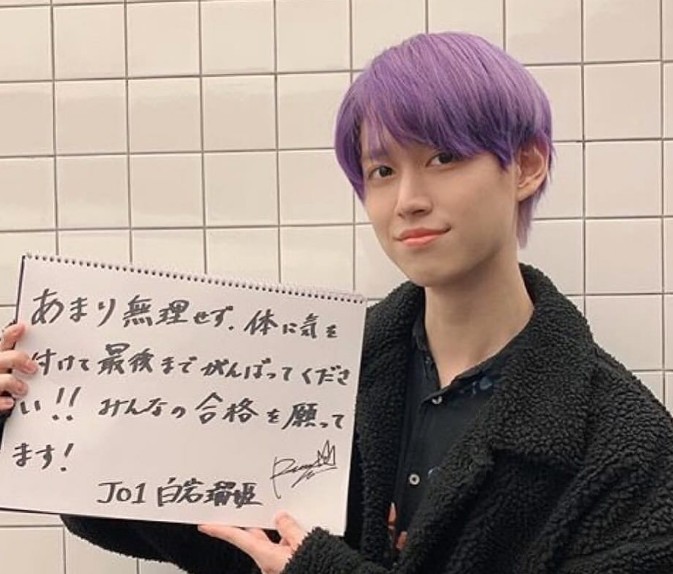 あまり無理せず、体に気を
付けて最後までがんばってくださ
い!! みんなの合格を願って
ます!
JO1 白岩瑠姫